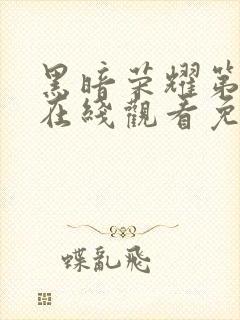 黑暗荣耀第
在綫觀看免
蝶亂飛